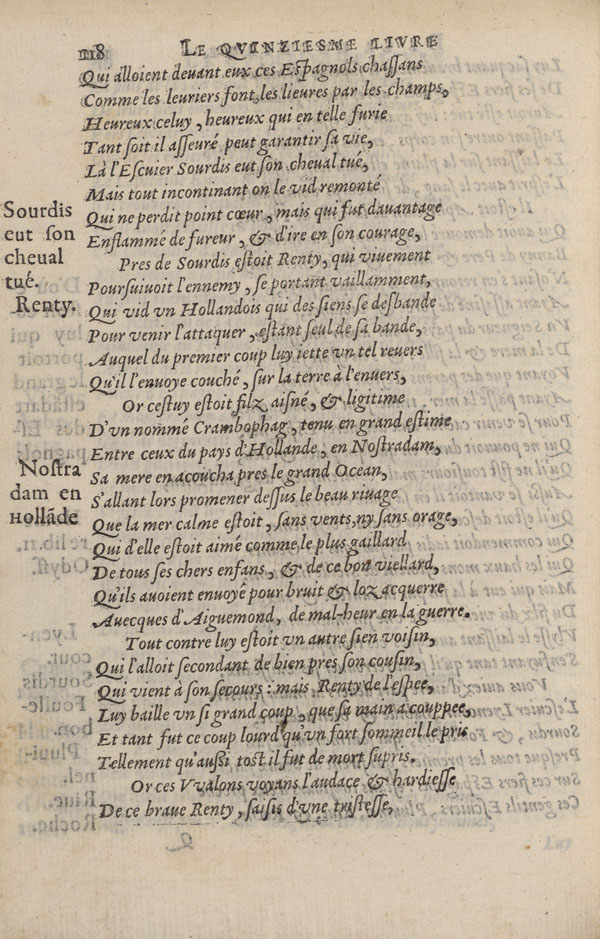 118 LE QVINZIESME LIVRE
Qui alloient deuant eux ces Espagnols chassans
Comme les leuriers font, les lieures par les champs,
Heureux celuy, heureux qui en telle furie
Tant soit il asseuré peut garantir sa vie,
Là l'Escuier Sourdis eut son cheual tué,
Mais tout incontinant on le vid remonté
Sourdis
eut son
cheual
tué.
Qui ne perdit point cœur, mais qui fut dauantage
Enflammé de fureur, & d'ire en son courage,
Pres de Sourdis estoit Renty, qui viuement
Poursuiuoit l'ennemy, se portant vaillamment,
Renty.
Qui vid vn Hollandois qui des siens se desbande
Pour venir l'attaquer, estant seul de sa bande,
Auquel du premier coup luy iette vn tel reuers
Qu'il l'enuoye couché, sur la terre à l'enuers,
Or cestuy estoit filz aisné, & ligitime
D'vn nommé Crambophag, tenu en grand estime
Entre ceux du pays d'Hollande, en Nostradam,
Nostra
dam en
Hollãde
Sa mere en acoucha pres le grand Ocean,
S'allant lors promener dessus le beau riuage
Que la mer calme estoit, sans vents, ny sans orage,
Qui d'elle estoit aimé comme le plus gaillard
De tous ses chers enfans, & de ce bon viellard,
Qu'ils auoient enuoyé pour bruit & loz acquerre
Auecques d'Aiguemond, de mal-heur en la guerre.
Tout contre luy estoit vn autre sien voisin,
Qui l'alloit secondant de bien pres son cousin,
Qui vient à son secours: mais Renty de l'espee,
Luy baille vn si grand coup, que sa main a couppee,
Et tant fut ce coup lourd qu'vn fort sommeil le pris
Tellement qu'aussi tost il fut de mort supris.
Or ces Vvalons voyans l'audace & hardiesse
De ce braue Renty, saisis d'vne tristesse,